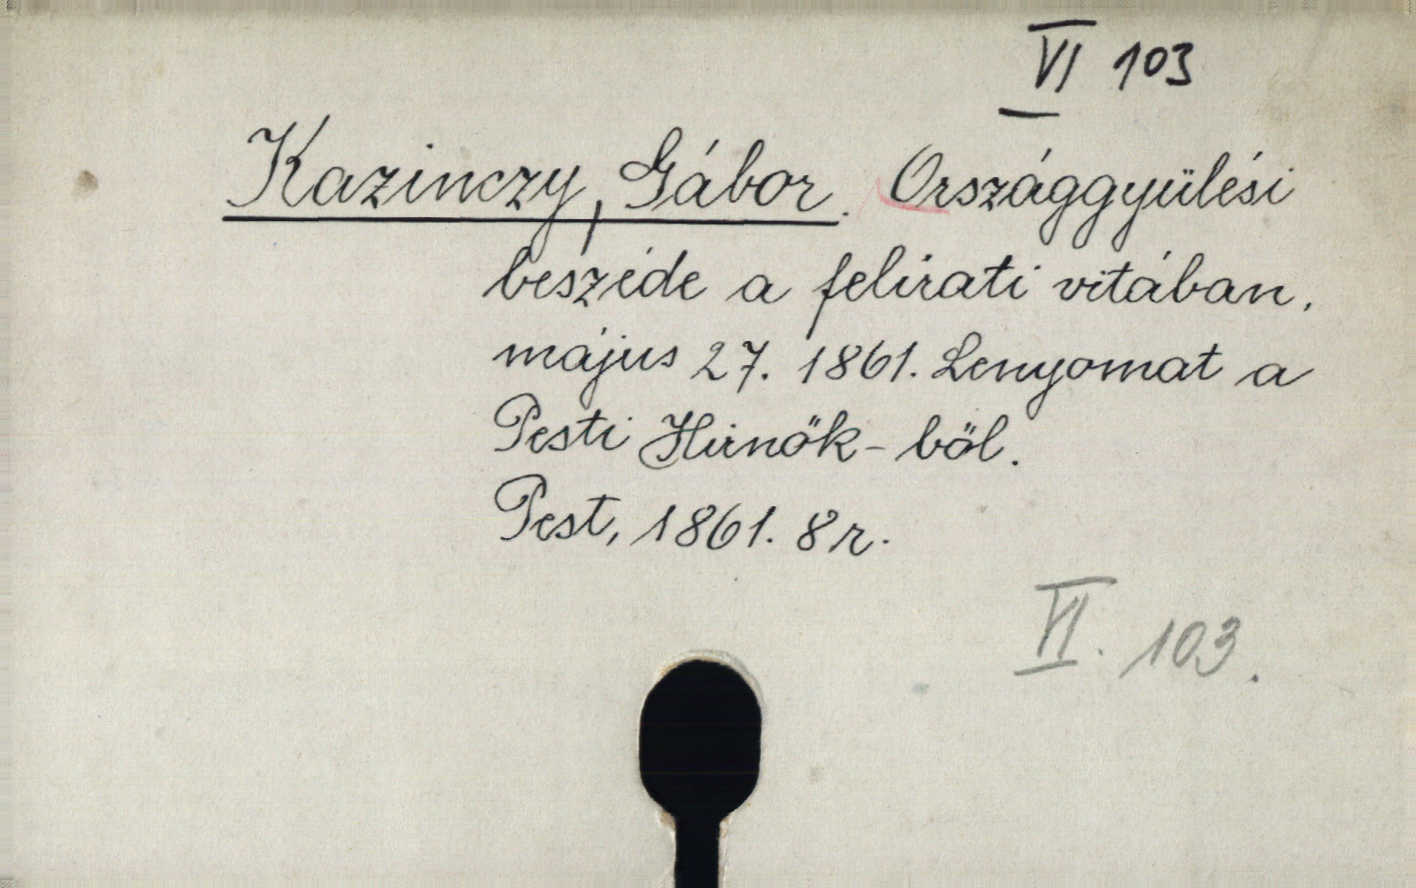 VI 103
Kazinczy, Gábor. Országgyülési
beszéde a felirati vitában,
május 27. 1861. Lenyomat a
Pesti Hirnök-ből.
Pest, 1861. 8r.
VI. 103.